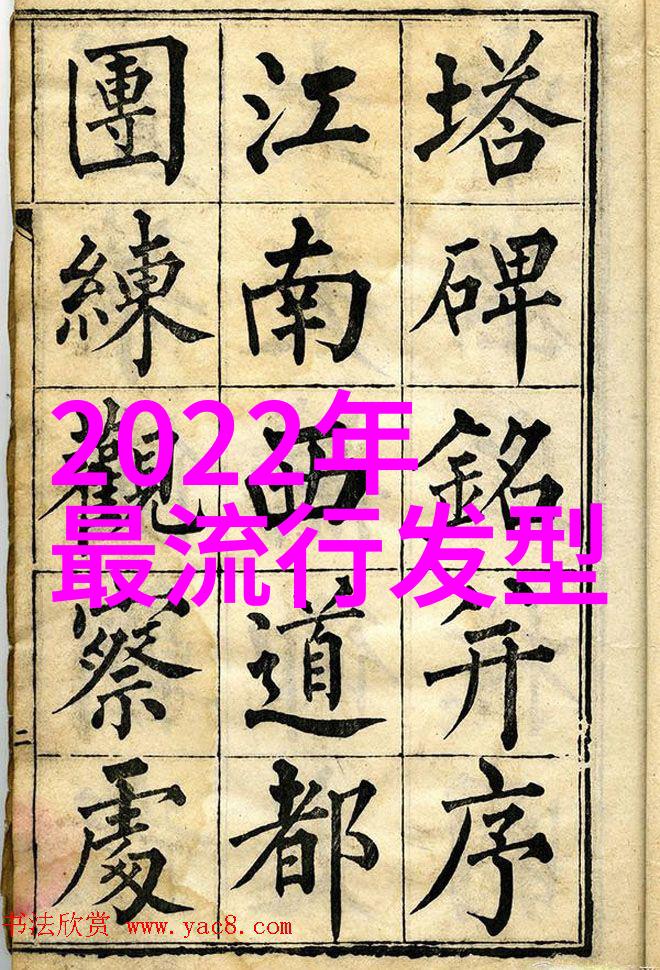 塔碑銘并序
江南西道都
團練觀察處
二
2022年
最流行发型
书法欣赏 www.yac8.com